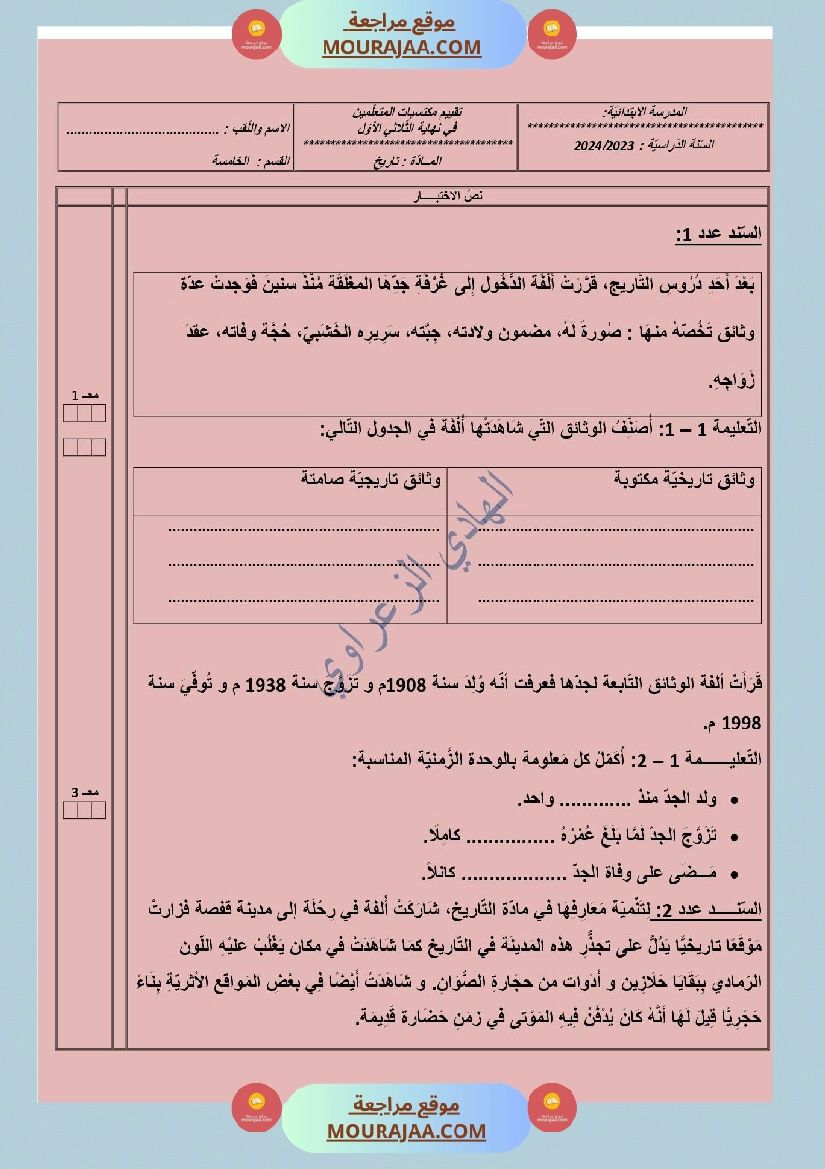 موقع مراجعة
MOURAJAA.COM
المدرسة الابتدائيّة:
********************************************
السّنة الدراسيّة : 2024/2023
تقييم مكتسبات المتعلّمين
في نهاية الثّلاثي الأوّل
***************************************
المـادّة : تاريخ
الاسم واللّقب : .......................................
القسم : الخامسة
نصّ الاختبـــــار
السّند عدد 1:
بَعْدَ أَحَدِ دُرُوسِ التَّاريخِ، قَرَّرَتْ أُلْفَة الدُّخُول إِلى غُرْفَةِ جَدِّهَا المغْلَقَة مُنْذُ سنينَ فَوَجدتْ عدّة
وثائق تَخُصّهُ منهَا : صُورةً لهُ، مضمون ولادته، جِبّته، سَرِيرِه الخَشَبيّ، حُجّة وفاته، عقدَ
زَوَاجِهِ.
معـ 1
التّعليمة 1 – 1: أُصَنِّفُ الوثائق التّي شاهَدَتْها أُلْفَة في الجدول التّالي:
وثائق تاريخيّة مكتوبة
وثائق تاريخيّة صامتة
الهادي الزعراوي
قَرَأَتْ ألفة الوثائق التّابعة لجدّها فعرفت أنّه وُلِدَ سنة 1908م و تزوَّجَ سنة 1938 م و تُوفّيَ سنة
1998 م.
التّعليـــــــمة 1 – 2: أُكَمِّلُ كل مَعلومة بالوحدة الزّمنيّة المناسبة:
معـ 3
• ولد الجدّ منذ ............. واحد.
• تَزَوَّجَ الجدّ لمّا بَلَغَ عُمْرُهُ ................ كامِلًا.
• مَـــضَى على وفاة الجدّ ................... كاملاً.
السّنـــــد عدد 2: لِتَنْمِيَة مَعَارِفِهَا في مادّة التّاريخ، شَارَكَتْ أُلفة في رِحْلَة إلى مدينة قفصة فزارتْ
مَوْقَعًا تاريخيًّا يَدُلّ على تجذُّرِ هذه المَدينَة في التّاريخ كمَا شاهَدَتْ في مكان يَغْلُبُ عليْهِ اللّون
الرّمادي بِبَقايَا حَلَازِين و أدَوات من حجَارةِ الصَّوّان. و شاهَدَتْ أَيْضًا فِي بعْضِ المَواقع الأثريّةِ بِنَاءً
حَجَرِيًّا قِيلَ لَهَا أنّهُ كَانَ يُدْفَنُ فِيهِ المَوْتى في زمَنِ حَضَارة قَدِيمَة.
موقع مراجعة
MOURAJAA.COM